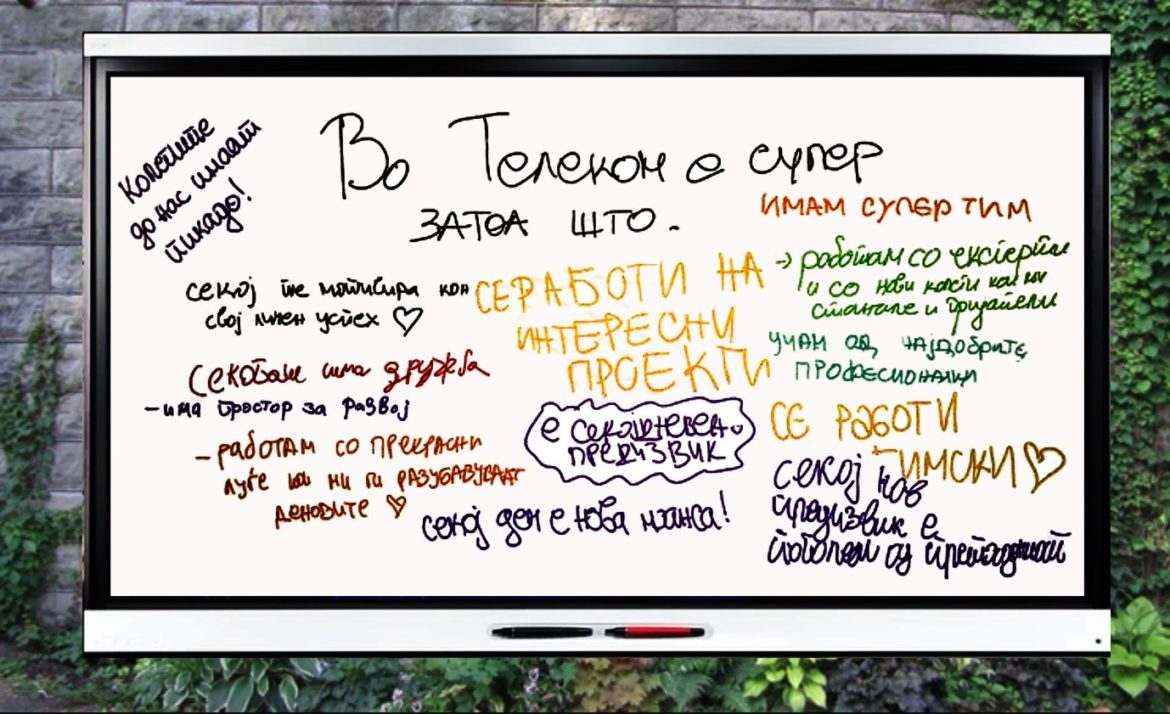 Колегите
до нас имаат
пикадо!
Во Телеком е супер
ЗАТОА ШТО.
секој те мотивира кон
свој личен успех ♡
Секогаш има дружба
- има простор за развој
- работам со прекрасни
луѓе кои ни ги РАЗУБАВУВААТ
деновите ♡
СЕ РАБОТИ НА
ИНТЕРЕСНИ
ПРОЕКТИ
е секојдневен
ПРЕДИЗВИК
секој ден е нова шанса!
ИМАМ СУПЕР ТИМ
→ работам со експерти
и со нови колеги кои ми
станале и пријатели
УЧАМ ОД НАЈДОБРИТЕ
ПРОФЕСИОНАЛЦИ
СЕ РАБОТИ
ТИМСКИ ♡
секој нов
предизвик е
поголем од претходниот